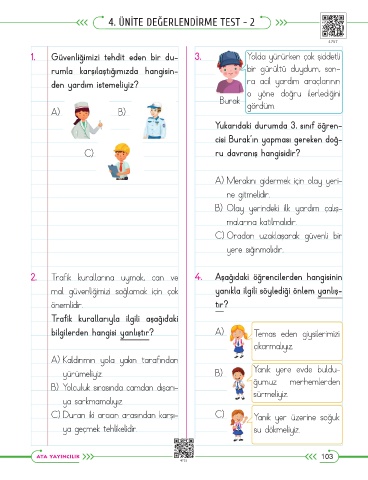 4. ÜNİTE DEĞERLENDİRME TEST - 2
1. Güvenliğimizi tehdit eden bir du-
rumla karşılaştığımızda hangisin-
den yardım istemeliyiz?
A)
B)
C)
2. Trafik kurallarına uymak, can ve
mal güvenliğimizi sağlamak için çok
önemlidir.
Trafik kurallarıyla ilgili aşağıdaki
bilgilerden hangisi yanlıştır?
A) Kaldırımın yola yakın tarafından
yürümeliyiz.
B) Yolculuk sırasında camdan dışarı-
ya sarkmamalıyız.
C) Duran iki aracın arasından karşı-
ya geçmek tehlikelidir.
3. Yolda yürürken çok şiddetli
bir gürültü duydum, son-
ra acil yardım araçlarının
o yöne doğru ilerlediğini
gördüm.
Burak
Yukarıdaki durumda 3. sınıf öğren-
cisi Burak'ın yapması gereken doğ-
ru davranış hangisidir?
A) Merakını gidermek için olay yeri-
ne gitmelidir.
B) Olay yerindeki ilk yardım çalış-
malarına katılmalıdır.
C) Oradan uzaklaşarak güvenli bir
yere sığınmalıdır.
4. Aşağıdaki öğrencilerden hangisinin
yanıkla ilgili söylediği önlem yanlış-
tır?
A) Temas eden giysilerimizi
çıkarmalıyız.
B) Yanık yere evde buldu-
ğumuz merhemlerden
sürmeliyiz.
C) Yanık yer üzerine soğuk
su dökmeliyiz.
ATA YAYINCILIK
103